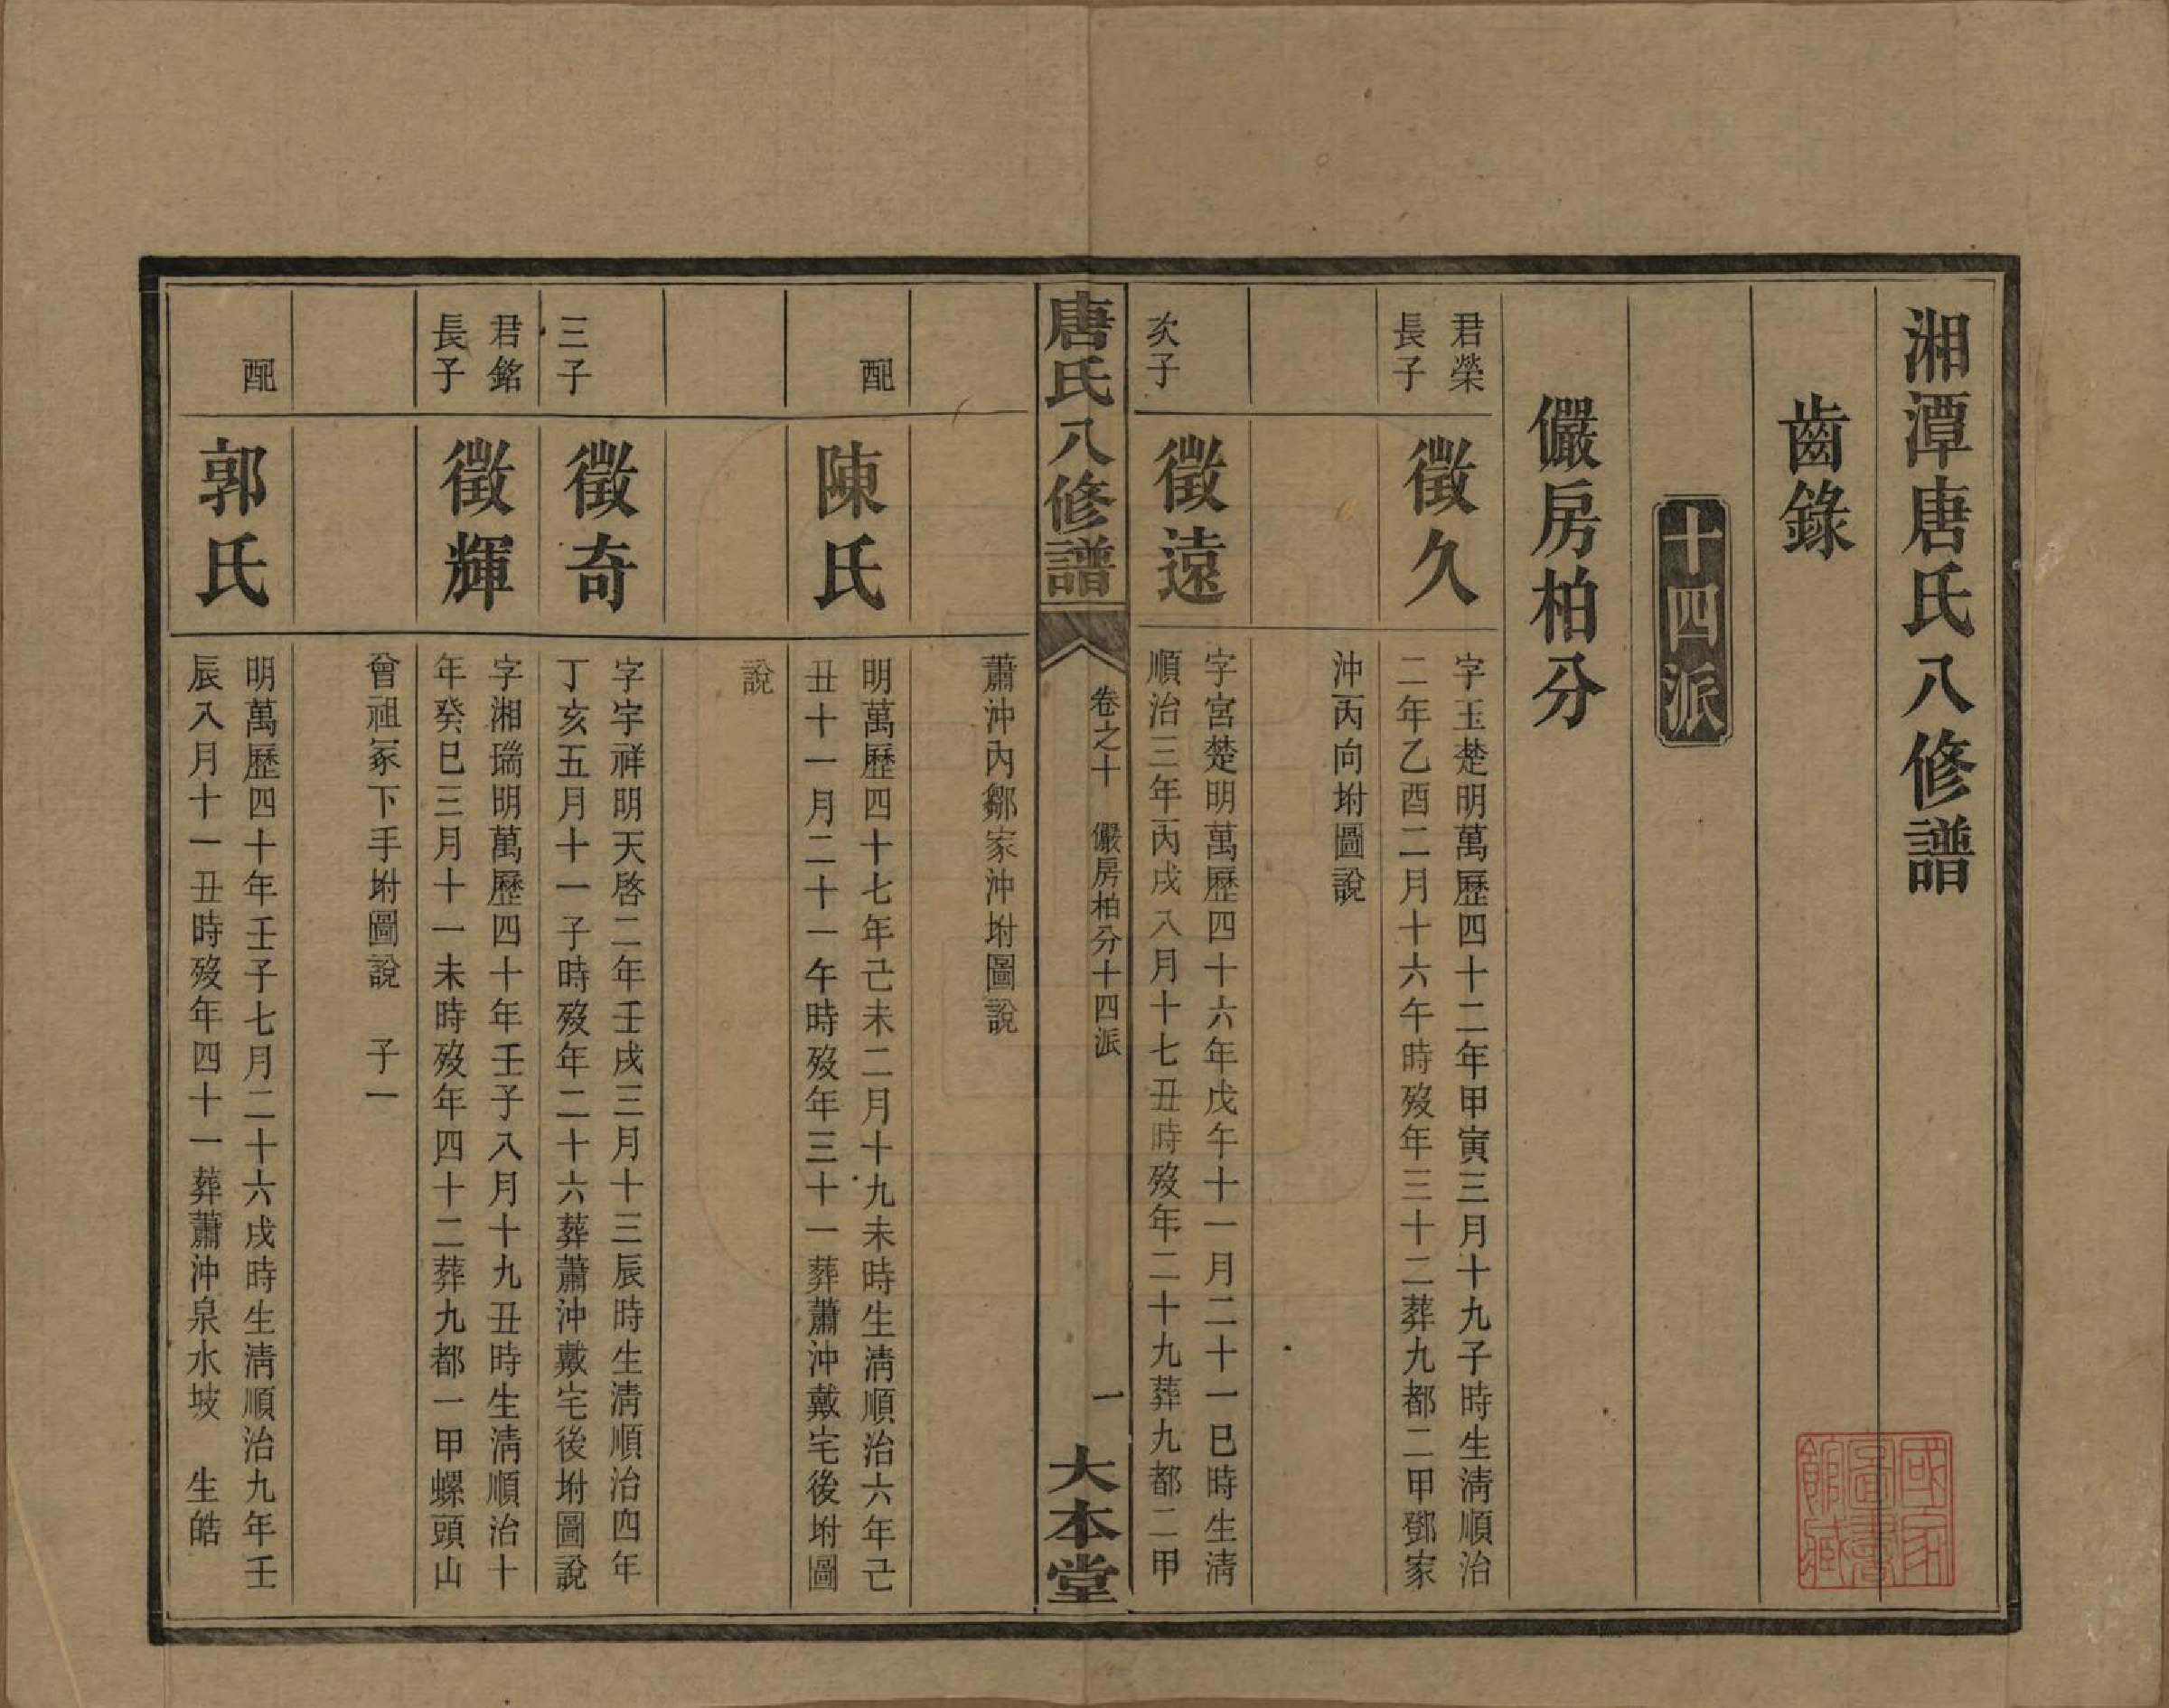 湘潭唐氏八修譜
齒錄
十四派
儼房柏分
君榮
長子
徵久
字玉楚明萬歷四十二年甲寅三月十九子時生淸順治
二年乙酉二月十六午時歿年三十二葬九都二甲鄧家
沖丙向坿圖說
次子
徵遠
字宮楚明萬歷四十六年戊午十一月二十一巳時生淸
順治三年丙戌八月十七丑時歿年二十九葬九都二甲
唐氏八修譜
卷之十　儼房柏分十四派
一
大本堂
蕭沖內鄒家沖坿圖說
配
陳氏
明萬歷四十七年己未二月十九未時生淸順治六年己
丑十一月二十一午時歿年三十一葬蕭沖戴宅後坿圖
說
三子
徵奇
字宇祥明天啓二年壬戌三月十三辰時生淸順治四年
丁亥五月十一子時歿年二十六葬蕭沖戴宅後坿圖說
君銘
長子
徵輝
字湘瑞明萬歷四十年壬子八月十九丑時生淸順治十
年癸巳三月十一未時歿年四十二葬九都一甲螺頭山
曾祖冢下手坿圖說　子一
配
郭氏
明萬歷四十年壬子七月二十六戌時生淸順治九年壬
辰八月十一丑時歿年四十一葬蕭沖泉水坡　生皓
國家
圖書
館藏